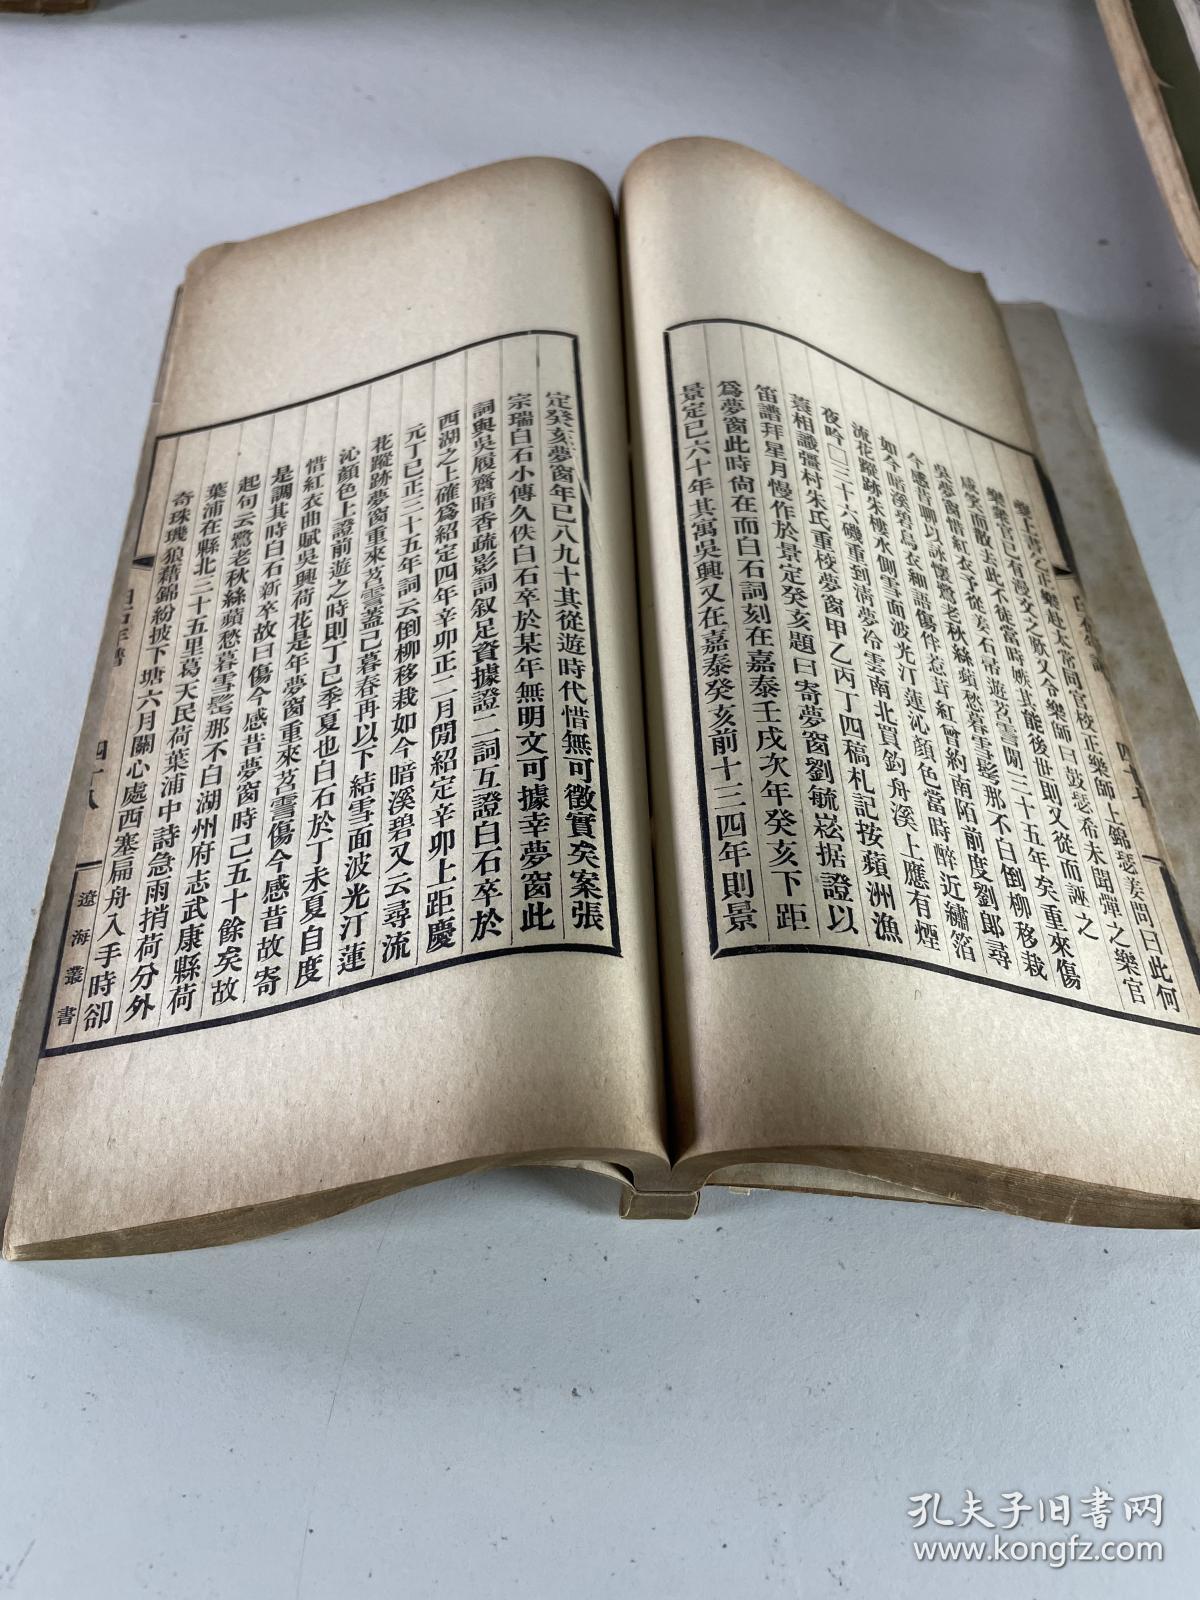 樂上書乙正樂赴太常同官校正樂師上錦瑟姜問曰此何
樂樂官已有漫文之歎又令樂師曰鼓瑟希未聞彈之樂官
咸笑而散去此不徒當時嫉其能後世則又從而誣之
吳夢窗惜紅衣予從姜石帚遊苕霅間三十五年矣重來傷
今感昔聊以詠懷鷺老秋絲蘋愁暮雪鬂那不白倒柳移栽
如今暗溪碧烏衣細語傷伴惹茸紅曾約南陌前度劉郎尋
流花蹤跡朱樓水側雪面波光汀蓮沁顏色當時醉近繡箔
夜吟□三十六磯重到清夢冷雲南北買釣舟溪上應有煙
蓑相識彊村朱氏重校夢窗甲乙丙丁四稿札記按蘋洲漁
笛譜拜星月慢作於景定癸亥題曰寄夢窗劉毓崧据證以
爲夢窗此時尙在而白石詞刻在嘉泰壬戌次年癸亥下距
景定已六十年其寓吳興又在嘉泰癸亥前十三四年則景
四十七
定癸亥夢窗年已八九十其從遊時代惜無可徵實矣案張
宗瑞白石小傳久佚白石卒於某年無明文可據幸夢窗此
詞與吳履齋暗香疏影詞叙足資據證二詞互證白石卒於
西湖之上確爲紹定四年辛卯正二月間紹定辛卯上距慶
元丁巳正三十五年詞云倒柳移栽如今暗溪碧又云尋流
花蹤跡夢窗重來苕霅蓋已暮春再以下結雪面波光汀蓮
沁顏色上證前遊之時則丁巳季夏也白石於丁未夏自度
惜紅衣曲賦吳興荷花是年夢窗重來苕霅傷今感昔故寄
是調其時白石新卒故曰傷今感昔夢窗時已五十餘矣故
起句云鷺老秋絲蘋愁暮雪鬂那不白湖州府志武康縣荷
葉浦在縣北三十五里葛天民荷葉浦中詩急雨捎荷分外
奇珠璣狼藉錦紛披下塘六月關心處西塞扁舟入手時卻
四十八
遼海叢書
孔夫子旧书网
www.kongfz.com